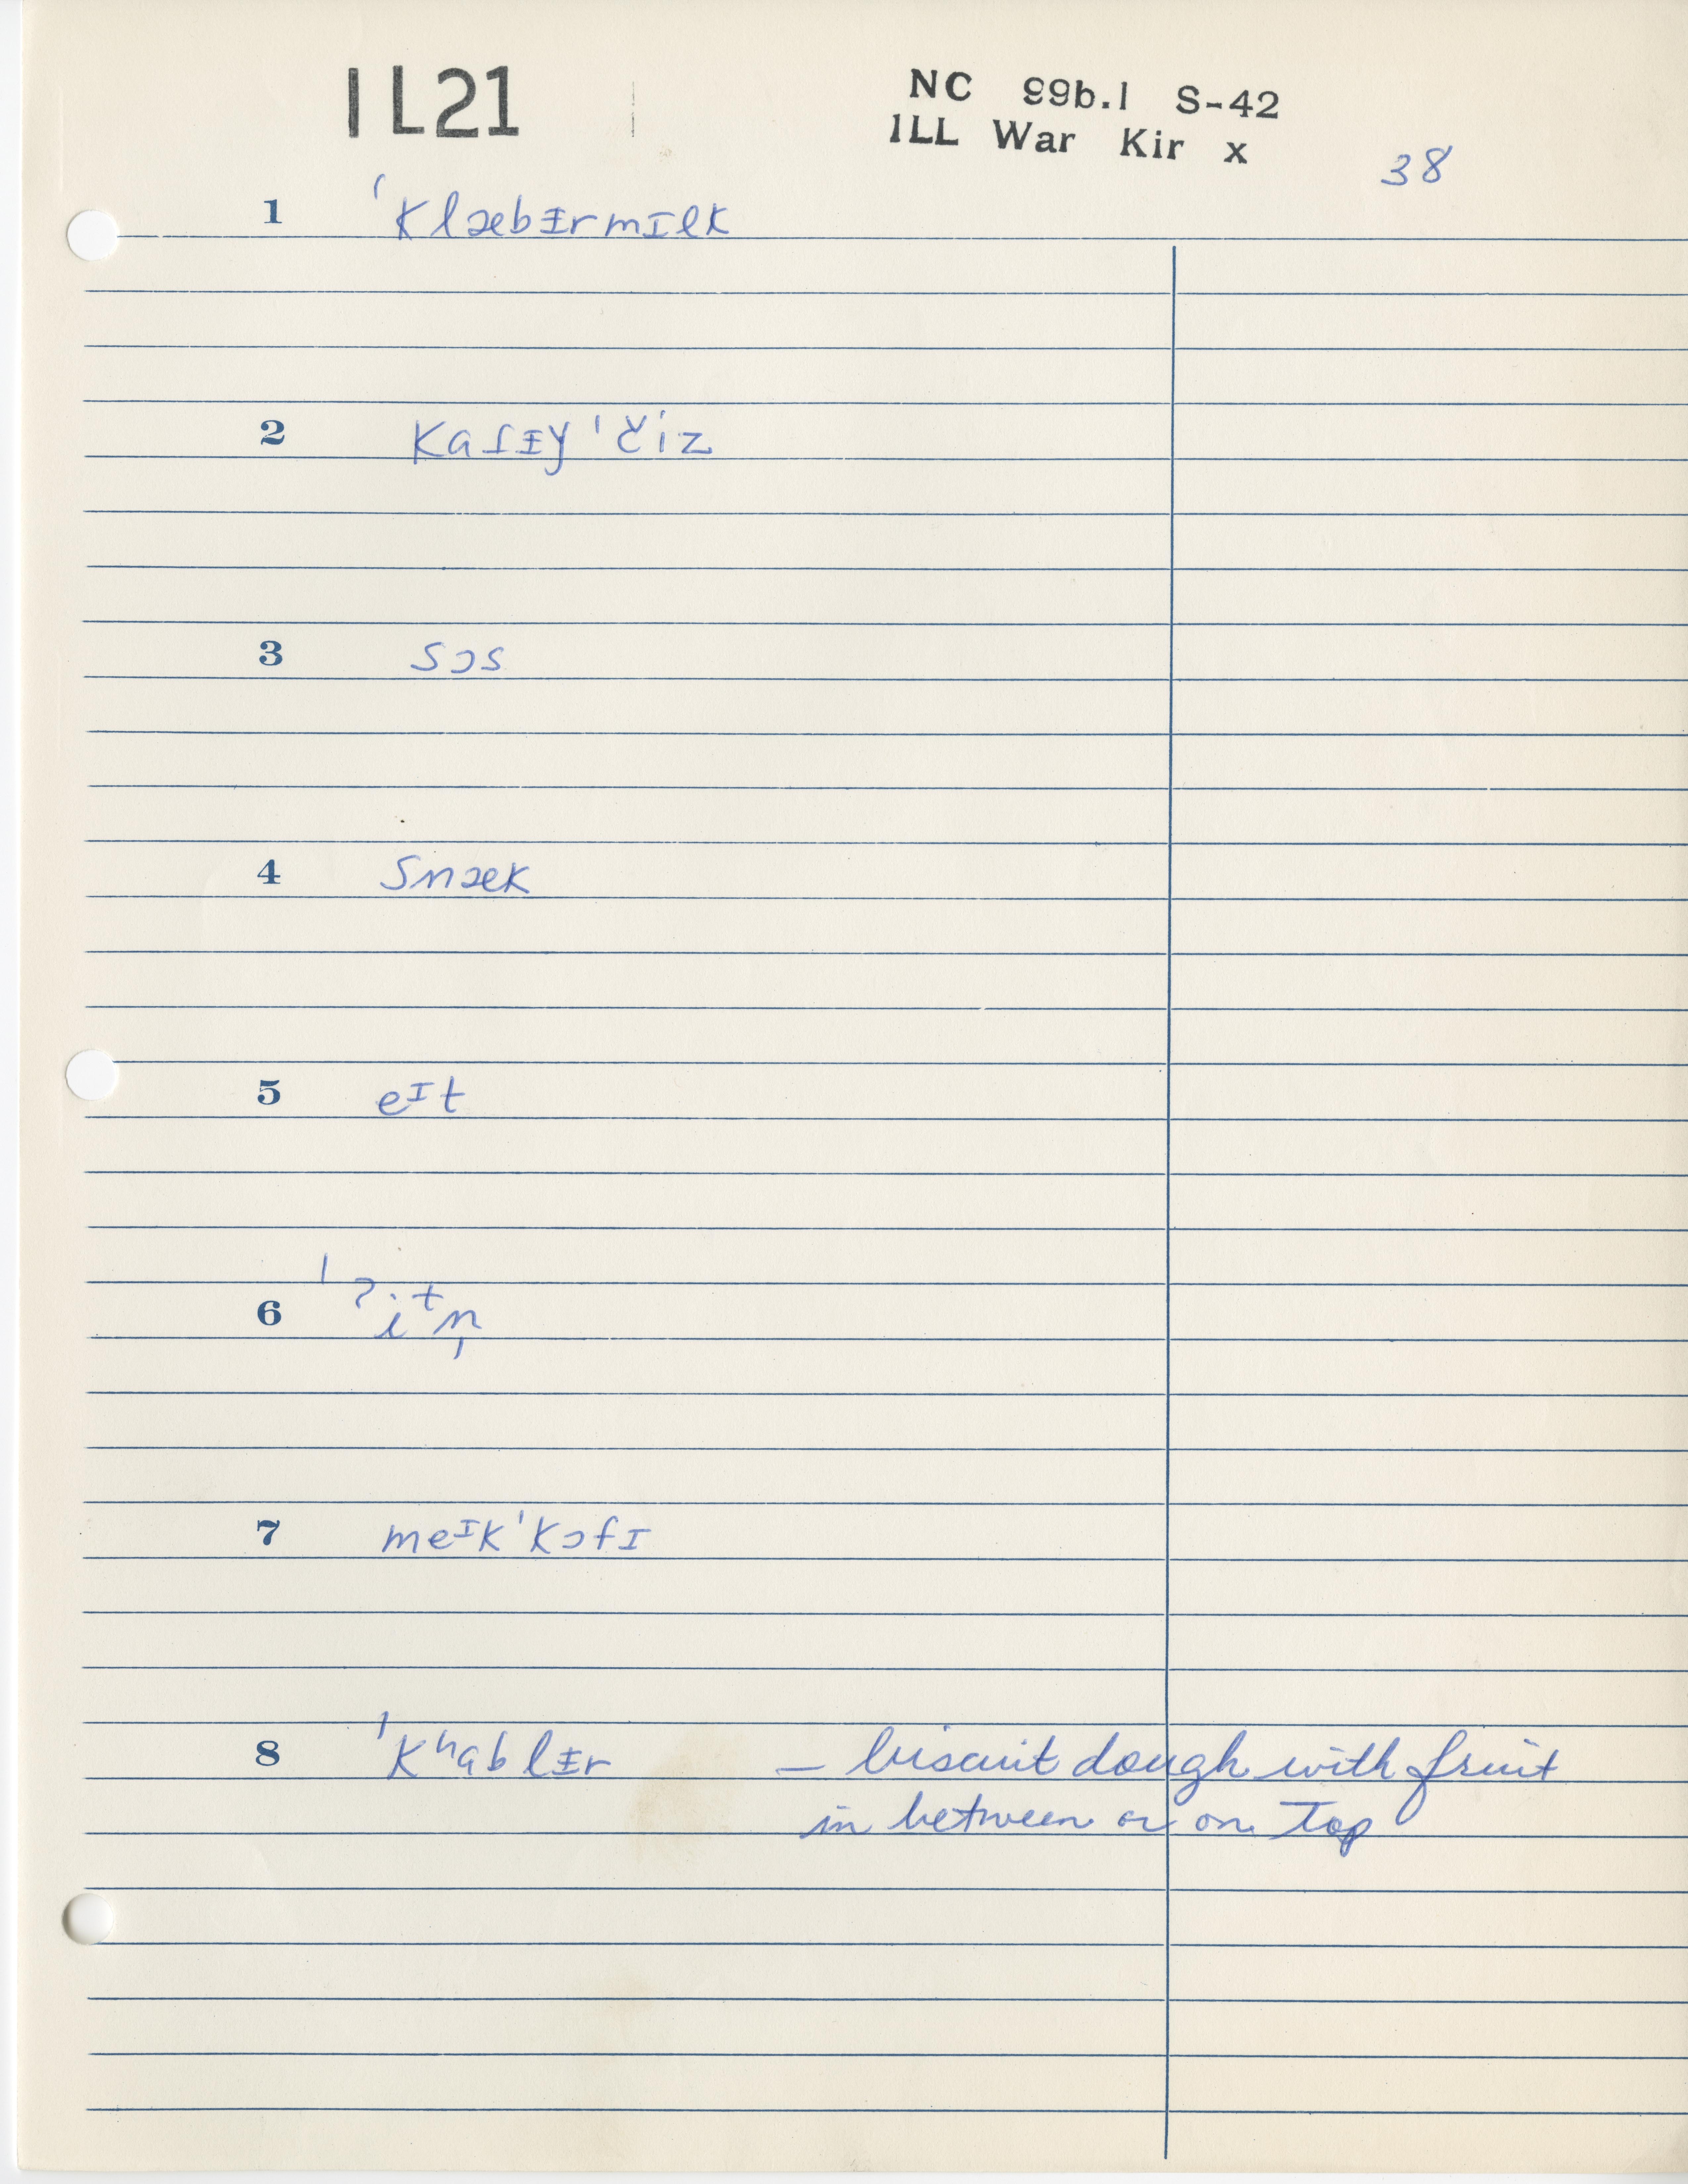 IL21
NC 99b.1 S-42
ILL War Kir x
38
1 ˈklæbᵻrmɪlk
2 kaſᵻy ˈčiz
3 sɔs
4 snæk
5 eᴵt
6 ˈʔitn̩
7 meᴵk ˈkɔfɪ
8 ˈkʰablᵻr – biscuit dough with fruit
in between or on top